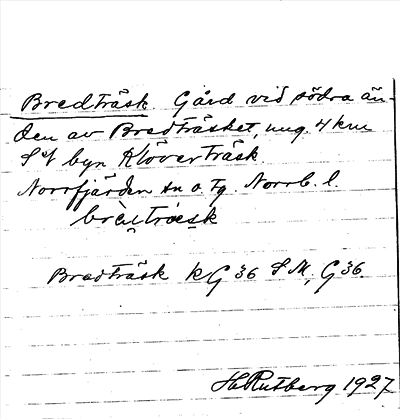 Bredträsk. Gård vid södra än-
den av Bredträsket, ung. 4 km
S of byn Klöverträsk.
Norrfjärden sn o. tg. Norrb. l.
Bredträsk kG 36 S M, G 36.
H Rutberg 1927